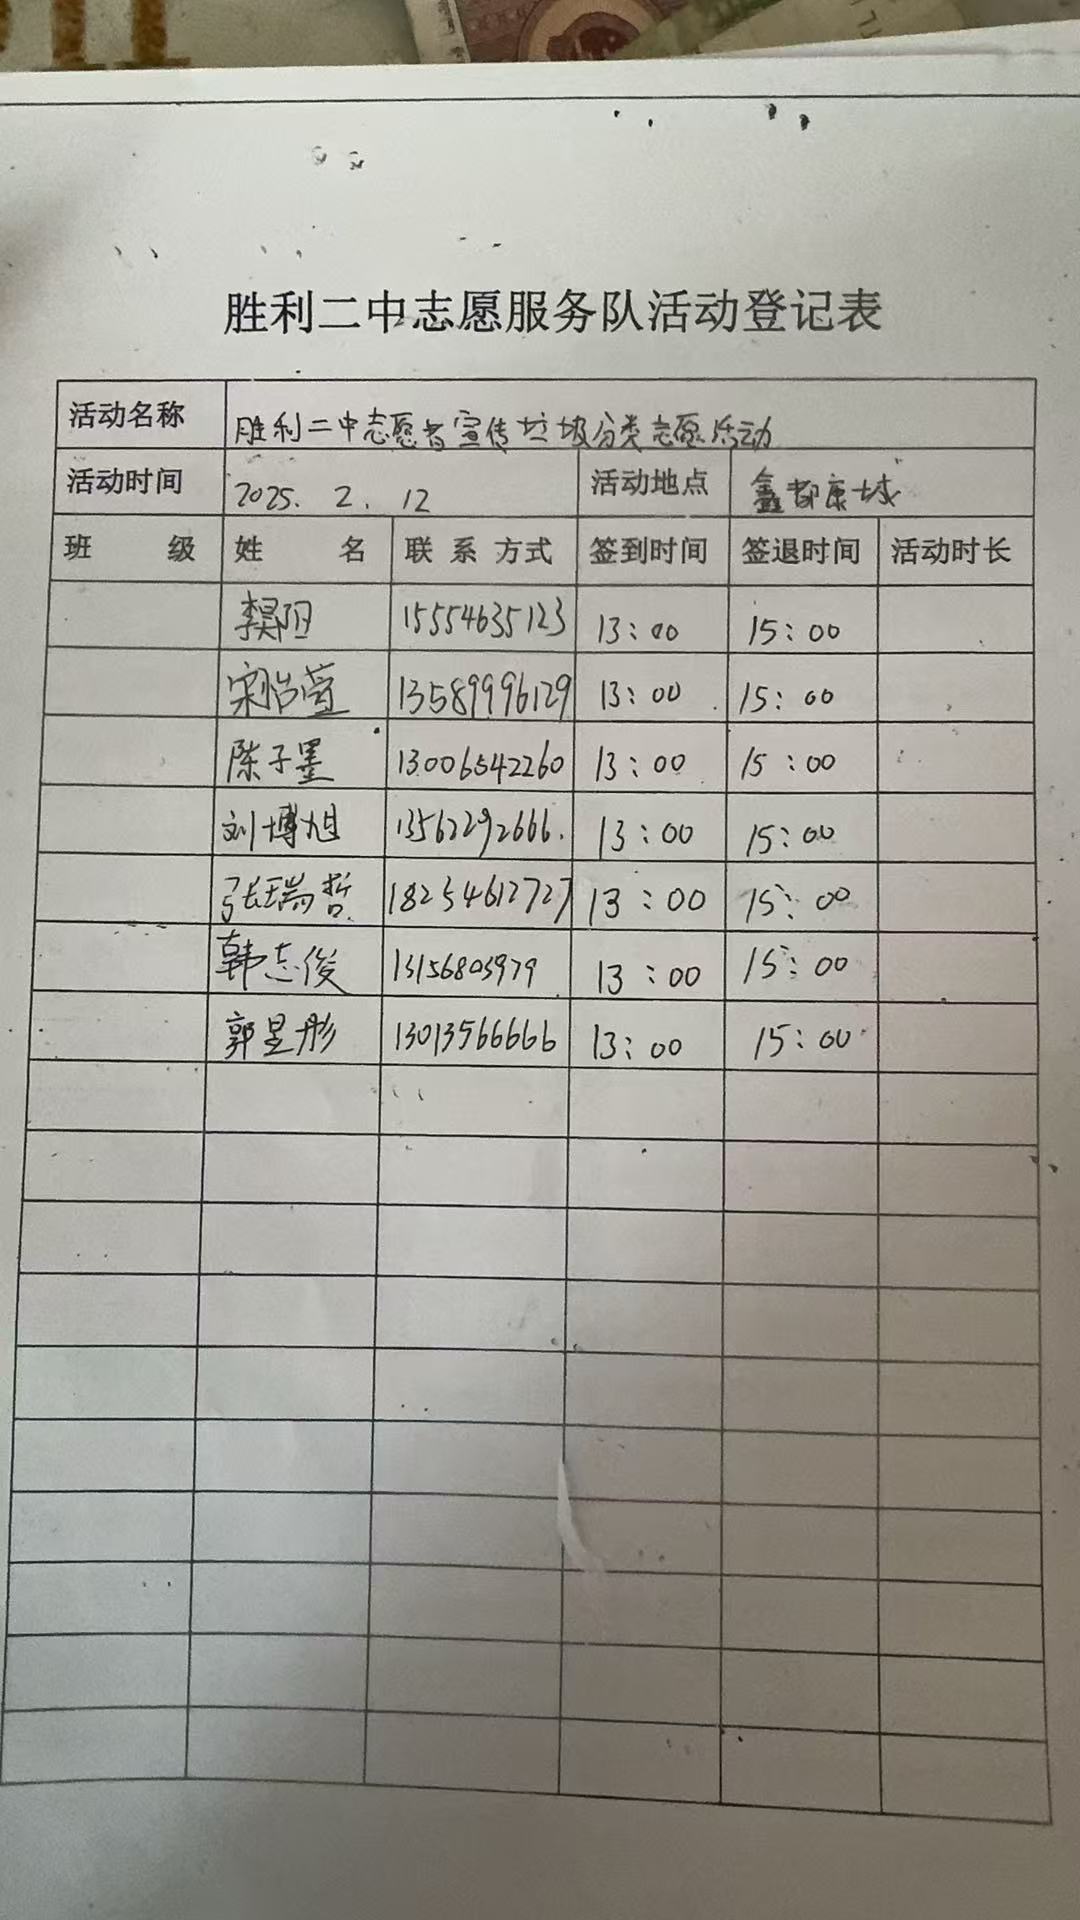 胜利二中志愿服务队活动登记表
活动名称 胜利二中志愿者宣传垃圾分类志愿活动
活动时间 2025. 2. 12 活动地点 鑫都康城
班 级 姓 名 联系方式 签到时间 签退时间 活动时长
李昊阳 15554635123 13:00 15:00
宋怡萱 13589996129 13:00 15:00
陈子墨 13006542260 13:00 15:00
刘博旭 13562292666. 13:00 15:00
张瑞哲 18254612727 13:00 15:00
韩志俊 13156803979 13:00 15:00
郭昱彤 13013566666 13:00 15:00